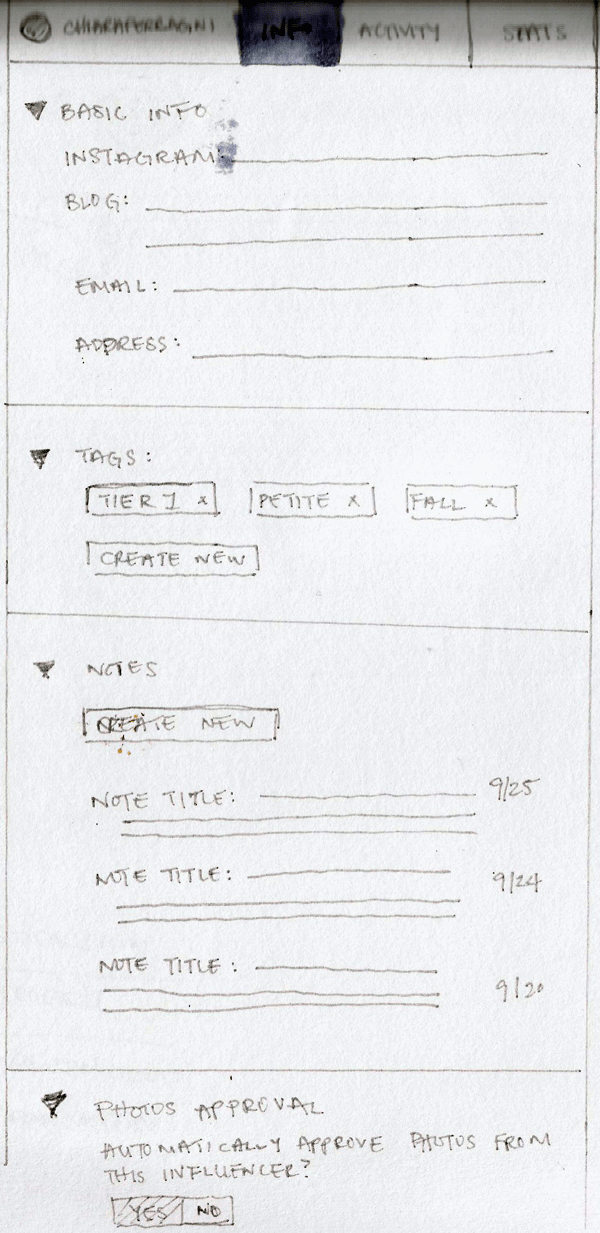 CHIARAFERRAGNI INFO ACTIVITY STATS
BASIC INFO
INSTAGRAM:
BLOG:
EMAIL:
ADDRESS:
TAGS:
TIER 1 x PETITE x FALL x
CREATE NEW
NOTES
CREATE NEW
NOTE TITLE: 9/25
NOTE TITLE: 9/24
NOTE TITLE: 9/20
PHOTOS APPROVAL
AUTOMATICALLY APPROVE PHOTOS FROM
THIS INFLUENCER?
YES NO